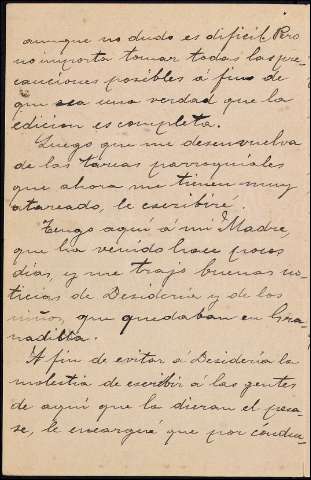 aunque no dudo es dificil. Pero
no importa tomar todas las pre-
cauciones posibles á fin de
que sea una verdad que la
edicion es completa.
Luego que me desenvuelva
de las tareas parroquiales
que ahora me tienen muy
atareado, le escribiré.
Tengo aquí á mi Madre,
que ha venido hace pocos
dias, y me trajo buenas no-
ticias de Desideria y de los
niños, que quedaban en Gra-
nadilla.
A fin de evitar á Desideria la
molestia de escribir á las gentes
de aquí que la dieran el pesa-
se, le encargué que por conduc-